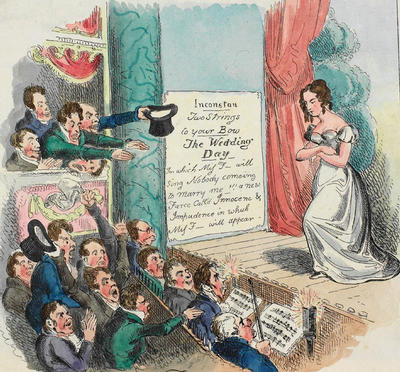 Inconstan
Two Strings
to your Bow
The Wedding
Day
In which Miss F— will
Sing Nobody comeing
to Marry me !!! a new
Farce Call'd Innocene &
Impudence in which
Miss F— will appear